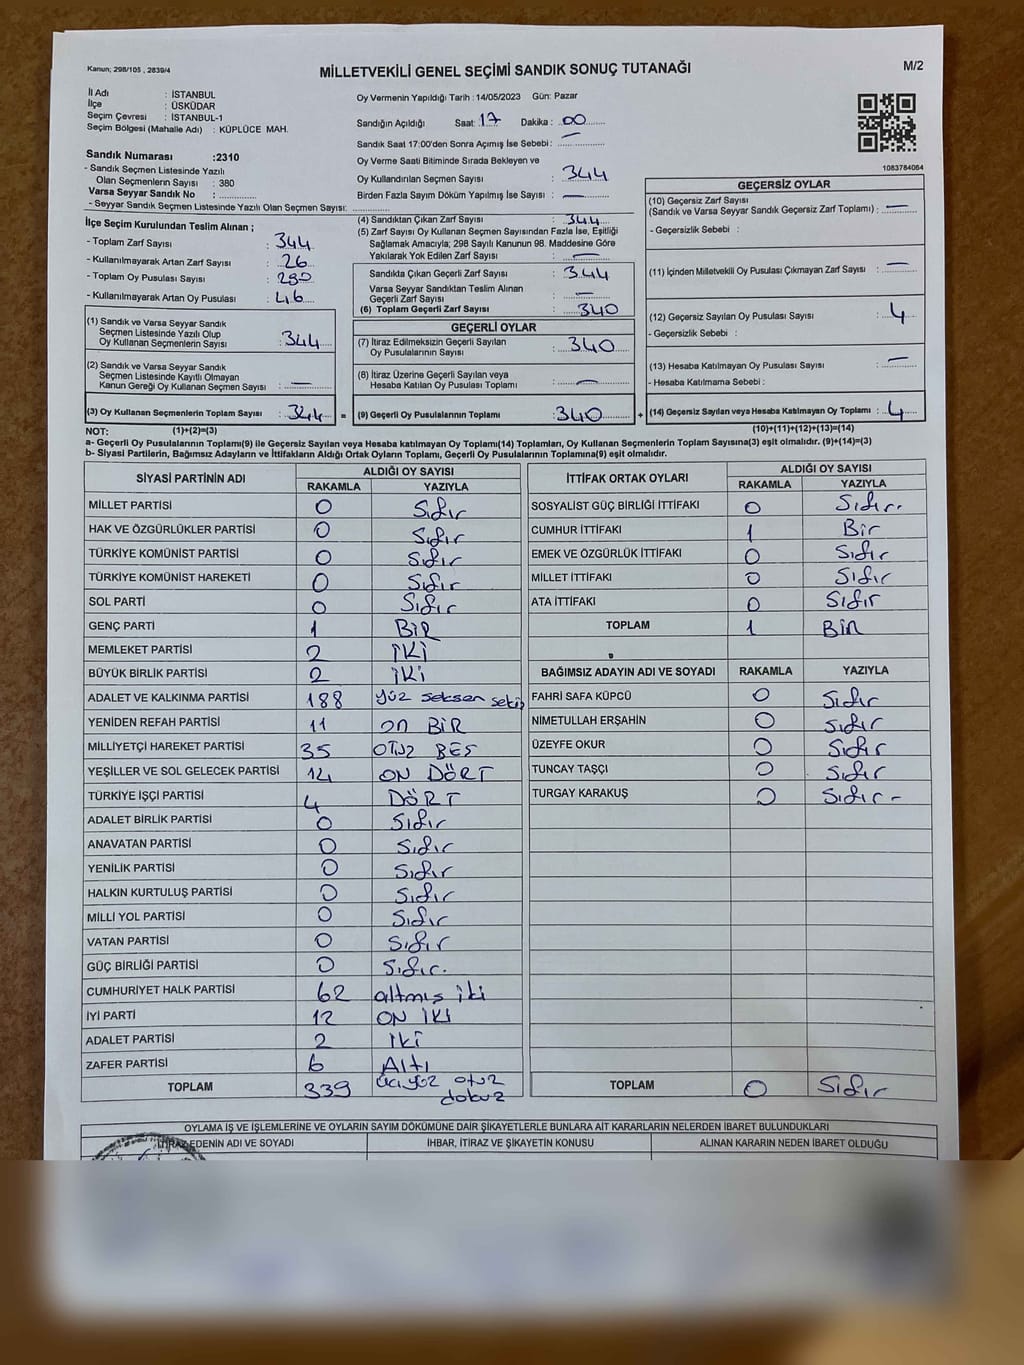 Kanun; 298/105 , 2839/4
MİLLETVEKİLİ GENEL SEÇİMİ SANDIK SONUÇ TUTANAĞI
M/2
İl Adı : İSTANBUL
İlçe : ÜSKÜDAR
Seçim Çevresi : İSTANBUL-1
Seçim Bölgesi (Mahalle Adı) : KÜPLÜCE MAH.
Sandık Numarası :2310
- Sandık Seçmen Listesinde Yazılı
Olan Seçmenlerin Sayısı : 380
Varsa Seyyar Sandık No :
- Seyyar Sandık Seçmen Listesinde Yazılı Olan Seçmen Sayısı:
Oy Vermenin Yapıldığı Tarih : 14/05/2023 Gün: Pazar
Sandığın Açıldığı Saat: 17 Dakika : 00
Sandık Saat 17:00'den Sonra Açımış İse Sebebi : —
Oy Verme Saati Bitiminde Sırada Bekleyen ve
Oy Kullandırılan Seçmen Sayısı : 344
Birden Fazla Sayım Döküm Yapılmış İse Sayısı : —
1083784084
İlçe Seçim Kurulundan Teslim Alınan ;
- Toplam Zarf Sayısı : 344
- Kullanılmayarak Artan Zarf Sayısı : 26
- Toplam Oy Pusulası Sayısı :
- Kullanılmayarak Artan Oy Pusulası : 46
(1) Sandık ve Varsa Seyyar Sandık
Seçmen Listesinde Yazılı Olup
Oy Kullanan Seçmenlerin Sayısı : 344
(2) Sandık ve Varsa Seyyar Sandık
Seçmen Listesinde Kayıtlı Olmayan
Kanun Gereği Oy Kullanan Seçmen Sayısı : —
(3) Oy Kullanan Seçmenlerin Toplam Sayısı : 344 =
(4) Sandıktan Çıkan Zarf Sayısı : 344
(5) Zarf Sayısı Oy Kullanan Seçmen Sayısından Fazla İse, Eşitliği
Sağlamak Amacıyla; 298 Sayılı Kanunun 98. Maddesine Göre
Yakılarak Yok Edilen Zarf Sayısı : —
Sandıkta Çıkan Geçerli Zarf Sayısı : 344
Varsa Seyyar Sandıktan Teslim Alınan
Geçerli Zarf Sayısı : —
(6) Toplam Geçerli Zarf Sayısı : 340
GEÇERLİ OYLAR
(7) İtiraz Edilmeksizin Geçerli Sayılan
Oy Pusulalarının Sayısı : 340
(8) İtiraz Üzerine Geçerli Sayılan veya
Hesaba Katılan Oy Pusulası Toplamı : —
(9) Geçerli Oy Pusulalarının Toplamı : 340 +
GEÇERSİZ OYLAR
(10) Geçersiz Zarf Sayısı
(Sandık ve Varsa Seyyar Sandık Geçersiz Zarf Toplamı) : —
- Geçersizlik Sebebi :
(11) İçinden Milletvekili Oy Pusulası Çıkmayan Zarf Sayısı : —
(12) Geçersiz Sayılan Oy Pusulası Sayısı : 4
- Geçersizlik Sebebi :
(13) Hesaba Katılmayan Oy Pusulası Sayısı : —
- Hesaba Katılmama Sebebi :
(14) Geçersiz Sayılan veya Hesaba Katılmayan Oy Toplamı : 4
NOT: (1)+(2)=(3) (10)+(11)+(12)+(13)=(14)
a- Geçerli Oy Pusulalarının Toplamı(9) ile Geçersiz Sayılan veya Hesaba katılmayan Oy Toplamı(14) Toplamları, Oy Kullanan Seçmenlerin Toplam Sayısına(3) eşit olmalıdır. (9)+(14)=(3)
b- Siyasi Partilerin, Bağımsız Adayların ve İttifakların Aldığı Ortak Oyların Toplamı, Geçerli Oy Pusulalarının Toplamına(9) eşit olmalıdır.
SİYASİ PARTİNİN ADI ALDIĞI OY SAYISI
RAKAMLA YAZIYLA
MİLLET PARTİSİ 0 Sıfır
HAK VE ÖZGÜRLÜKLER PARTİSİ 0 Sıfır
TÜRKİYE KOMÜNİST PARTİSİ 0 Sıfır
TÜRKİYE KOMÜNİST HAREKETİ 0 Sıfır
SOL PARTİ 0 Sıfır
GENÇ PARTİ 1 BİR
MEMLEKET PARTİSİ 2 İKİ
BÜYÜK BİRLİK PARTİSİ 2 İKİ
ADALET VE KALKINMA PARTİSİ 188 yüz seksen sekiz
YENİDEN REFAH PARTİSİ 11 on BİR
MİLLİYETÇİ HAREKET PARTİSİ 35 OTUZ BEŞ
YEŞİLLER VE SOL GELECEK PARTİSİ 14 ON DÖRT
TÜRKİYE İŞÇİ PARTİSİ 4 DÖRT
ADALET BİRLİK PARTİSİ 0 Sıfır
ANAVATAN PARTİSİ 0 Sıfır
YENİLİK PARTİSİ 0 Sıfır
HALKIN KURTULUŞ PARTİSİ 0 Sıfır
MİLLİ YOL PARTİSİ 0 Sıfır
VATAN PARTİSİ 0 Sıfır
GÜÇ BİRLİĞİ PARTİSİ 0 Sıfır.
CUMHURİYET HALK PARTİSİ 62 altmış iki
İYİ PARTİ 12 ON İKİ
ADALET PARTİSİ 2 İKİ
ZAFER PARTİSİ 6 Altı
TOPLAM 339 üçyüz otuz
dokuz
İTTİFAK ORTAK OYLARI ALDIĞI OY SAYISI
RAKAMLA YAZIYLA
SOSYALİST GÜÇ BİRLİĞİ İTTİFAKI 0 Sıfır.
CUMHUR İTTİFAKI 1 Bir
EMEK VE ÖZGÜRLÜK İTTİFAKI 0 Sıfır
MİLLET İTTİFAKI 0 Sıfır
ATA İTTİFAKI 0 Sıfır
TOPLAM 1 BİR
BAĞIMSIZ ADAYIN ADI VE SOYADI RAKAMLA YAZIYLA
FAHRİ SAFA KÜPCÜ 0 Sıfır
NİMETULLAH ERŞAHİN 0 Sıfır
ÜZEYFE OKUR 0 Sıfır
TUNCAY TAŞÇI 0 Sıfır
TURGAY KARAKUŞ 0 Sıfır -
TOPLAM 0 Sıfır
OYLAMA İŞ VE İŞLEMLERİNE VE OYLARIN SAYIM DÖKÜMÜNE DAİR ŞİKAYETLERLE BUNLARA AİT KARARLARIN NELERDEN İBARET BULUNDUKLARI
İTİRAZ EDENİN ADI VE SOYADI İHBAR, İTİRAZ VE ŞİKAYETİN KONUSU ALINAN KARARIN NEDEN İBARET OLDUĞU